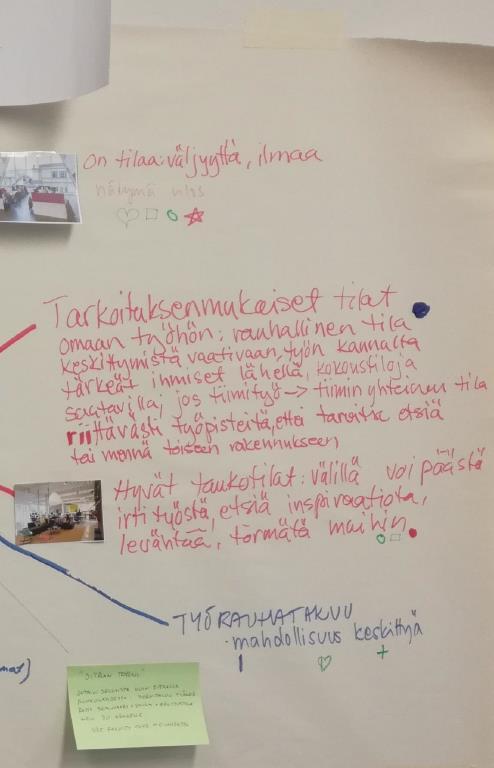 On tilaa: väljyyttä, ilmaa
näkymä ulos
Tarkoituksenmukaiset tilat
omaan työhön: rauhallinen tila
keskittymistä vaativaan, työn kannalta
tärkeät ihmiset lähellä, kokoustiloja
saatavilla, jos tiimityö → tiimin yhteinen tila
riittävästi työpisteitä, ettei tarvitse etsiä
tai mennä toiseen rakennukseen
Hyvät taukotilat: välillä voi päästä
irti työstä, etsiä inspiraatiota,
levähtää, törmätä muihin
TYÖRAUHATAKUU
- mahdollisuus keskittyä